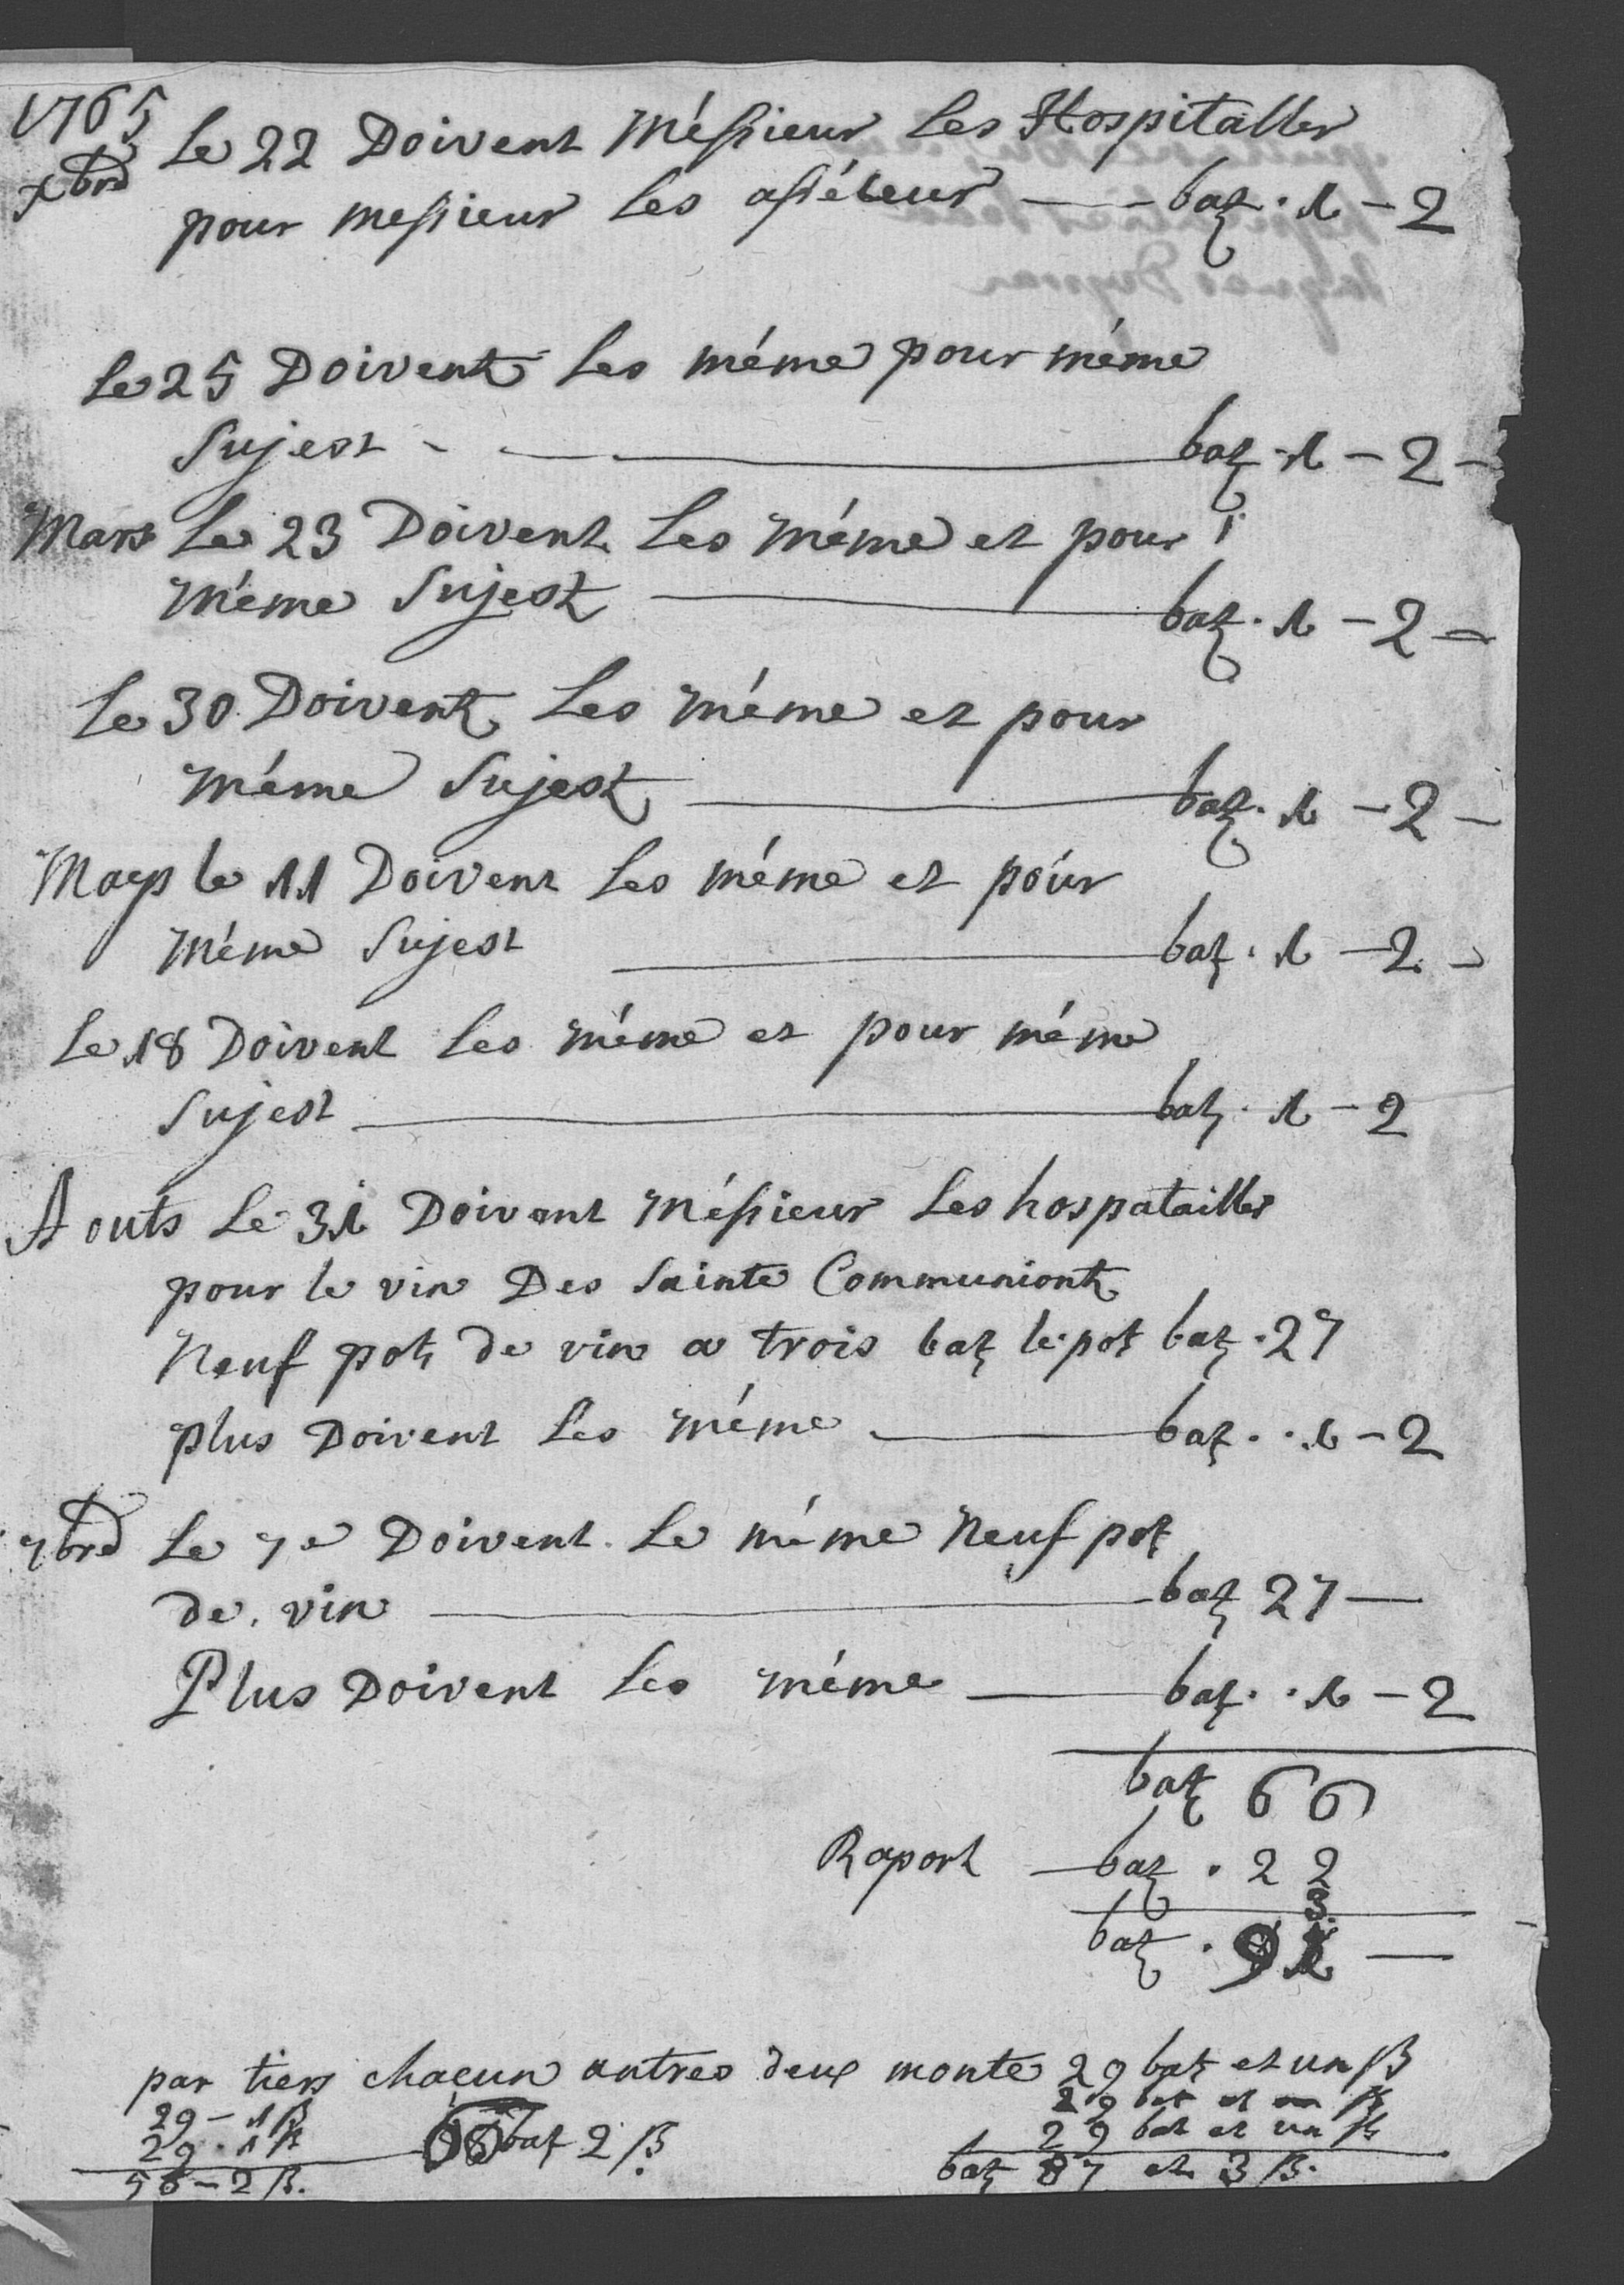 1765
xbre Le 22 Doivent Méssieur Les Hospitaller
pour messieur Les assésseur — batz · 1 - 2
Le 25 Doivent Les méme pour méme
Sujest - — batz · 1 - 2 -
Mars Le 23 Doivent Les méme et pour
méme Sujest — batz · 1 - 2 -
Le 30 Doivent Les méme et pour
méme Sujest — batz · 1 - 2 -
Mays le 11 Doivent Les méme et pour
méme Sujest — batz · 1 - 2 -
Le 18 Doivent Les méme et pour méme
Sujest — batz · 1 - 2
Aouts Le 31 Doivent Méssieur Les hospatailler
pour le vin Des Sainte Communiont
Neuf pots de vin a trois batz le pot batz · 27
plus Doivent Les méme — batz · · 1 - 2
7bre Le 7e Doivent Le méme Neuf pot
de vin — batz 27 —
Plus Doivent Les méme — batz · · 1 - 2
batz 66
Raport — batz · 22
3.
batz · 91 —
par tiers chacun antres deux monte 29 batz et un ß
29 - 1 ß
29 · 1 ß — batz 2 ß.
58 - 2 ß.
29 bat et un ß
29 bat et un ß
batz 87 et 3 ß.